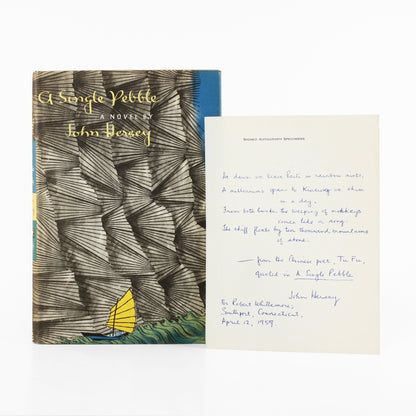 A Single Pebble
A NOVEL BY
John Hersey
SIGNED AUTOGRAPH SPECIMENS
At dawn we leave in rainbow mists,
A space to we
in a day.
From both banks the weeping of monkeys
comes like a song.
The skiff floats by ten thousand mountains
of stone.
— from the Chinese poet, Tu Fu,
quoted in A Single Pebble
John Hersey
For Robert Whittemore,
Southport, Connecticut,
April 12, 1959.